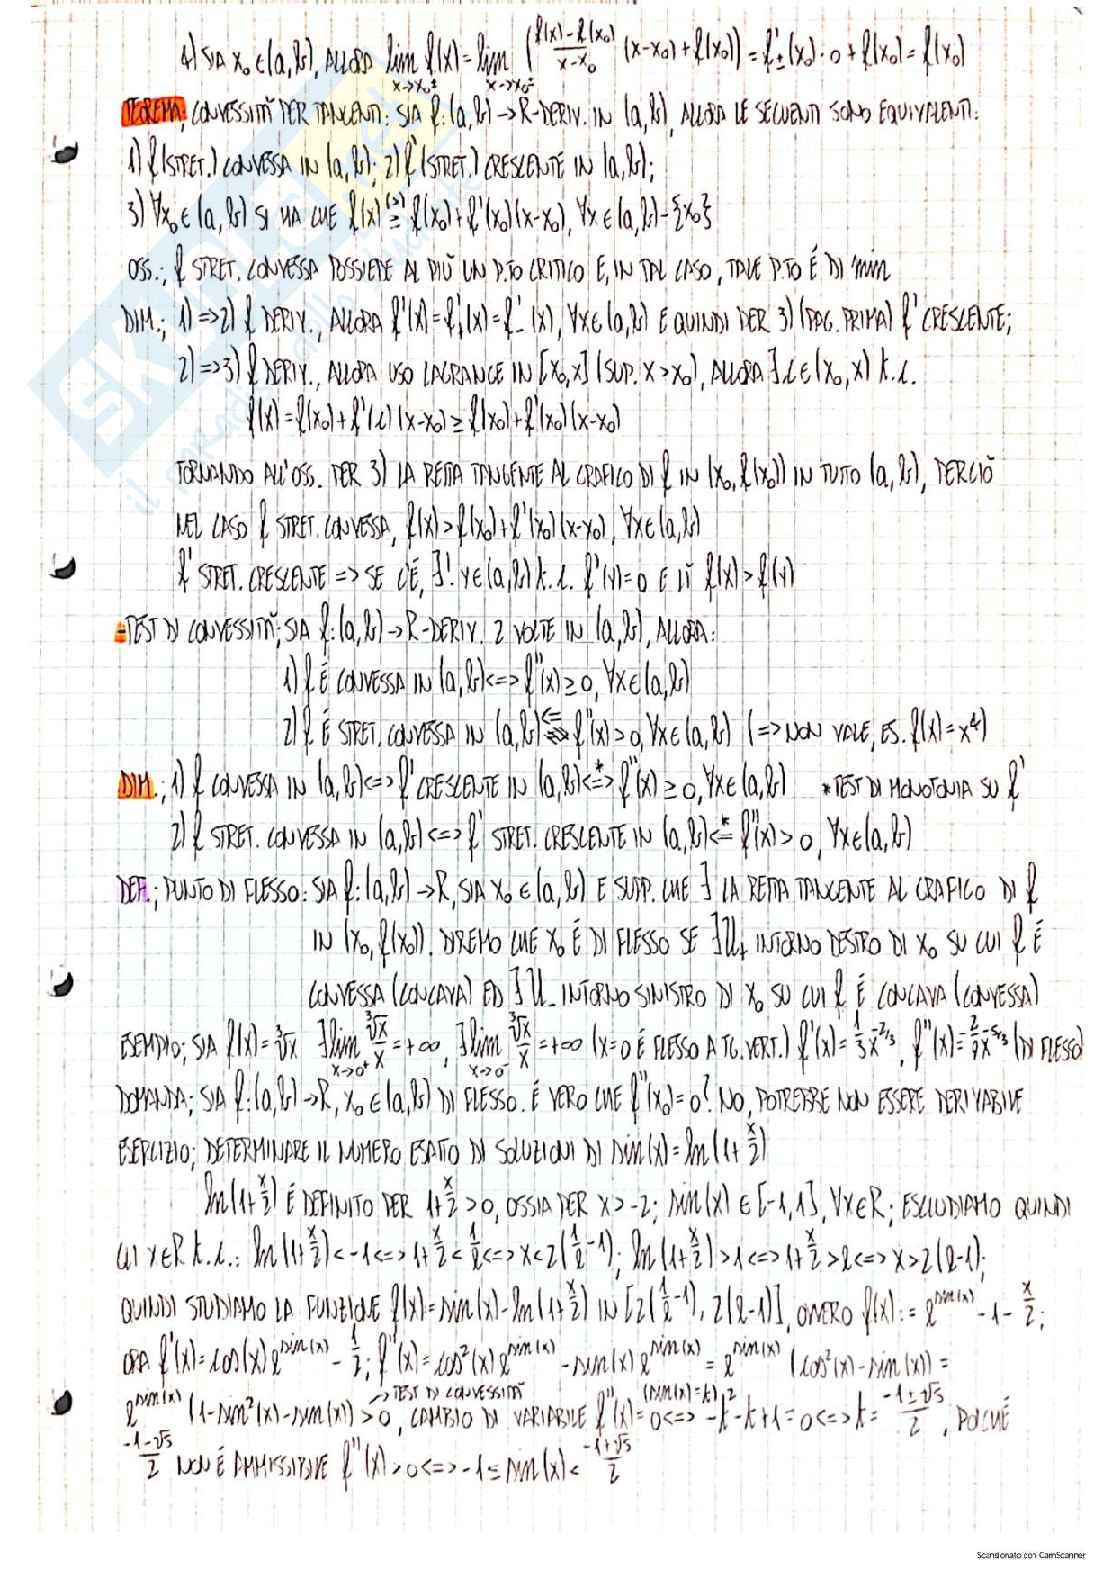 4) SIA x₀∈(a,b), ALLORA lim_{x→x₀±} f(x) = lim_{x→x₀±} (\frac{f(x)-f(x₀)}{x-x₀} (x-x₀)+f(x₀)) = f'±(x₀)·0+f(x₀) = f(x₀)
TEOREMA; CONVESSITÀ PER TANGENTI: SIA f:(a,b)→R-DERIV. IN (a,b), ALLORA LE SEGUENTI SONO EQUIVALENTI:
1) f (STRET.) CONVESSA IN (a,b); 2) f' (STRET.) CRESCENTE IN (a,b);
3) ∀x₀∈(a,b) SI HA CHE f(x) ≥^{(>)} f(x₀)+f'(x₀)(x-x₀), ∀x∈(a,b)-{x₀}
OSS.; f STRET. CONVESSA POSSIEDE AL PIÙ UN P.TO CRITICO E, IN TAL CASO, TALE P.TO È DI min
DIM.; 1)=>2) f DERIV., ALLORA f'(x)=f'₊(x)=f'₋(x), ∀x∈(a,b) E QUINDI PER 3) (PAG. PRIMA) f' CRESCENTE;
2)=>3) f DERIV., ALLORA USO LAGRANGE IN [x₀,x] (SUP. x>x₀), ALLORA ∃c∈(x₀,x) t.c.
f(x)=f(x₀)+f'(c)(x-x₀) ≥ f(x₀)+f'(x₀)(x-x₀)
TORNANDO ALL'OSS. PER 3) LA RETTA TANGENTE AL GRAFICO DI f IN (x₀,f(x₀)) IN TUTO (a,b), PERCIÒ
NEL CASO f STRET. CONVESSA, f(x)>f(x₀)+f'(x₀)(x-x₀), ∀x∈(a,b)
f' STRET. CRESCENTE => SE C'È, ∃! y∈(a,b) t.c. f'(y)=0 E LÌ f(x)>f(y)
-TEST DI CONVESSITÀ; SIA f:(a,b)→R-DERIV. 2 VOLTE IN (a,b), ALLORA:
1) f È CONVESSA IN (a,b)<=>f''(x)≥0, ∀x∈(a,b)
2) f È STRET. CONVESSA IN (a,b) <= f''(x)>0, ∀x∈(a,b) (=> NON VALE, ES. f(x)=x⁴)
DIM.; 1) f CONVESSA IN (a,b)<=>f' CRESCENTE IN (a,b)<=*>f''(x)≥0, ∀x∈(a,b) *TEST DI MONOTONIA SU f'
2) f STRET. CONVESSA IN (a,b)<=>f' STRET. CRESCENTE IN (a,b)<=* f''(x)>0, ∀x∈(a,b)
DEF.; PUNTO DI FLESSO: SIA f:(a,b)→R, SIA x₀∈(a,b) E SUPP. CHE ∃ LA RETTA TANGENTE AL GRAFICO DI f
IN (x₀,f(x₀)). DIREMO CHE x₀ È DI FLESSO SE ∃U₊ INTORNO DESTRO DI x₀ SU CUI f È
CONVESSA (CONCAVA) ED ∃U₋ INTORNO SINISTRO DI x₀ SU CUI f È CONCAVA (CONVESSA)
ESEMPIO; SIA f(x)=∛x ∃lim_{x→0⁺} \frac{∛x}{x}=+∞, ∃lim_{x→0⁻} \frac{∛x}{x}=+∞ (x=0 È FLESSO A TG. VERT.) f'(x)=\frac{1}{3}x^{-2/3}, f''(x)=\frac{2}{9}x^{-5/3} (DI FLESSO)
DOMANDA; SIA f:(a,b)→R, x₀∈(a,b) DI FLESSO. È VERO CHE f''(x₀)=0? NO, POTREBBE NON ESSERE DERIVABILE
ESERCIZIO; DETERMINARE IL NUMERO ESATO DI SOLUZIONI DI sin(x)=ln(1+\frac{x}{2})
ln(1+\frac{x}{2}) È DEFINITO PER 1+\frac{x}{2}>0, OSSIA PER x>-2; sin(x)∈[-1,1], ∀x∈R; ESCLUDIAMO QUINDI
GLI x∈R t.c.: ln(1+\frac{x}{2})<-1<=>1+\frac{x}{2}<\frac{1}{e}<=>x<2(\frac{1}{e}-1); ln(1+\frac{x}{2})>1<=>1+\frac{x}{2}>e<=>x>2(e-1);
QUINDI STUDIAMO LA FUNZIONE f(x)=sin(x)-ln(1+\frac{x}{2}) IN [2(\frac{1}{e}-1), 2(e-1)], OVVERO f(x):=e^{sin(x)}-1-\frac{x}{2};
ORA f'(x)=cos(x)e^{sin(x)}-\frac{1}{2}; f''(x)=cos²(x)e^{sin(x)}-sin(x)e^{sin(x)}=e^{sin(x)}(cos²(x)-sin(x))=
e^{sin(x)}(1-sin²(x)-sin(x))>0 →TEST DI CONVESSITÀ, CAMBIO DI VARIABILE (sin(x)=t) f''(x)=0<=>-t²-t+1=0<=>t=\frac{-1±√5}{2}, POICHÉ
\frac{-1-√5}{2} NON È AMMISSIBILE f''(x)>0<=>-1≤sin(x)<\frac{-1+√5}{2}
Scansionato con CamScanner